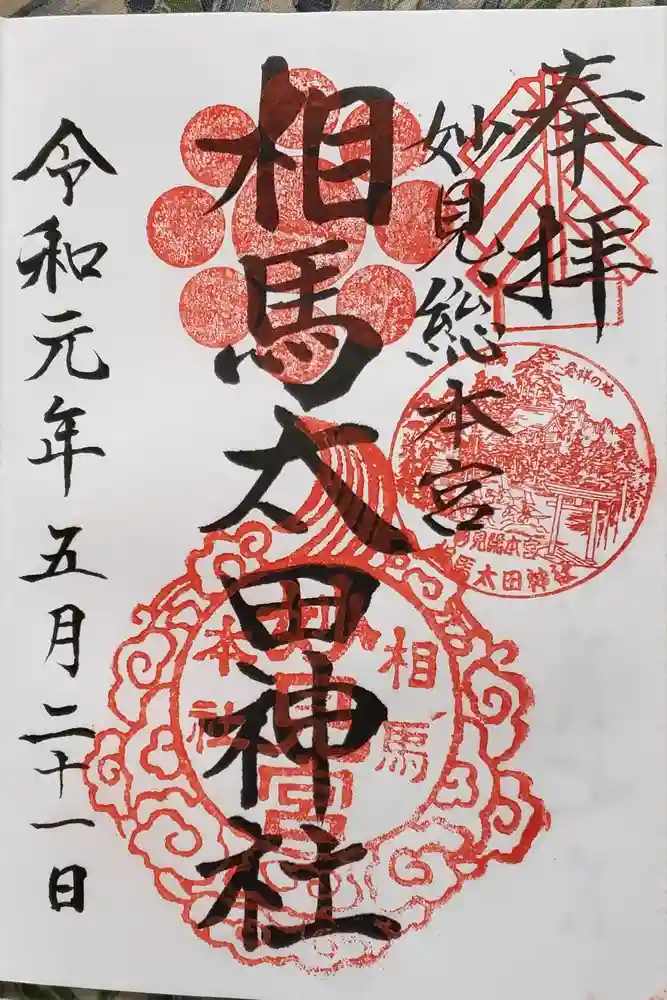 奉拝
妙見総本宮
相馬太田神社
令和元年五月二十一日
発祥の地
妙見総本宮
相馬太田神社
相馬
妙見宮
本社